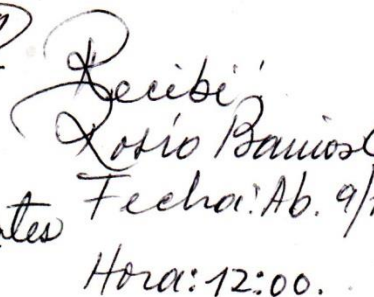 Recibí
Rosío Barrios
Fecha: Ab. 9/
Hora: 12:00.